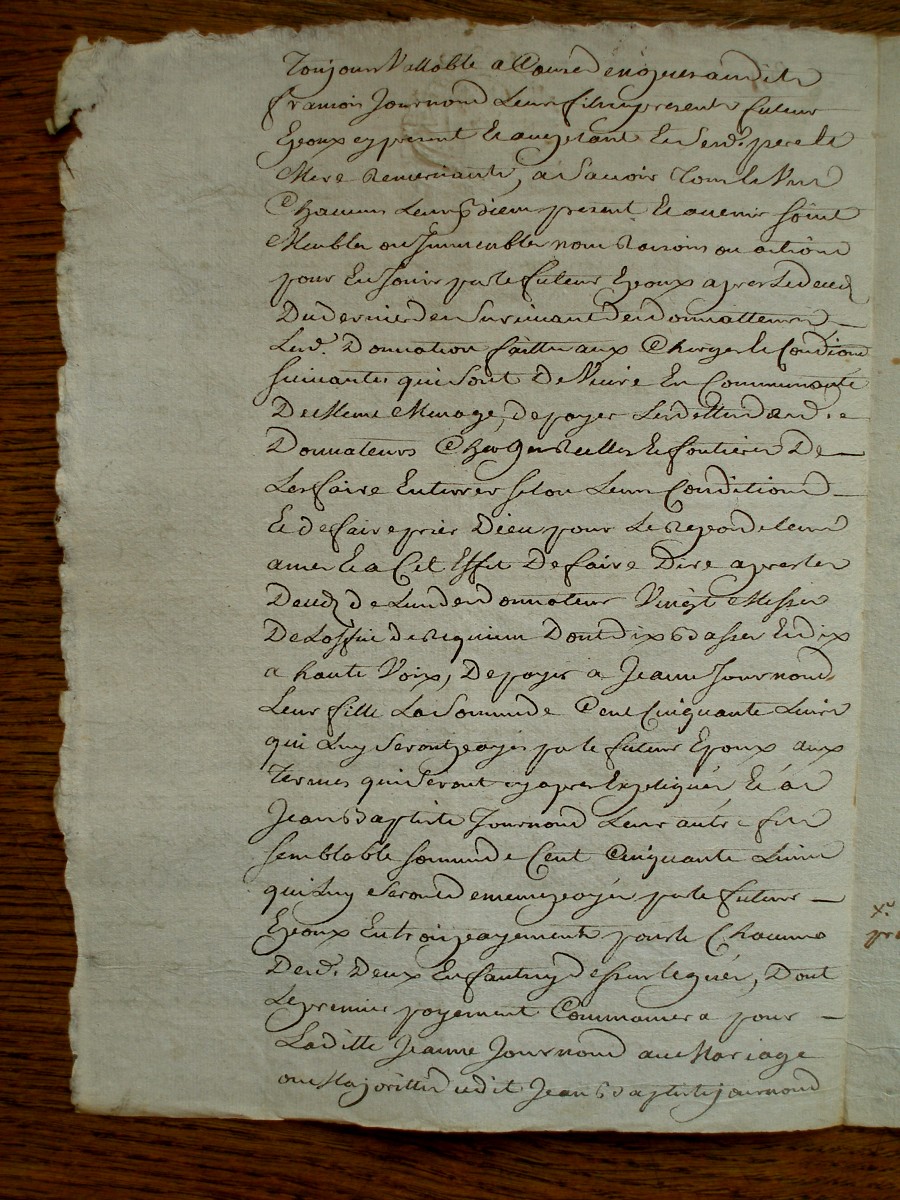 Toujours Vallable a Cause de nopces audit
francois Journond Leur fils cy present futeur
Epoux cy present Et acceptant Et Sesd. pere Et
Mere Remerciants, a Savoir Tous Et Uns
Chacuns Leurs Biens present Et avenir Soint
Meubles ou Immeubles noms Raisons ou actions
pour En Jouir par le futeur Epoux apres Le deced
Du dernier des Survivant des donnatteurs
Lesd. Donnation faitte aux Charges Et Conditions
suivantes qui Sont De Vivre En Communauté
De Meme Menage, de payer Les dettes des d.
Donnateurs Charges Reelles Et fontieres De
Les faire Enterrer selon Leurs Conditions
Et de faire prier Dieu pour Le Repos de Leurs
ames Et a Cet Effet De faire Dire apres Les
Deced de L'un des donnateurs Vingt Messes
De Loffice de Requiem Dont dix Basses Et dix
a haute Voix, De payer a Jeanne Journond
Leur fille La Somme de Cent Cinquante Livres
qui Luy Seront payés par le futeur Epoux aux
Termes qui Seront cy apres Expliqués Et a
Jean Baptiste Journond Leur autre fils
semblable somme de Cent Cinquante Livres
qui Luy Seront de meme payés par le futeur
Epoux En trois payements pour le Chacuns
Desd. Deux Enfants cy dessus legués, Dont
Le premier payement Commancera pour
Laditte Jeanne Journond au Mariage
ou Majoritté dudit Jean Baptiste journond